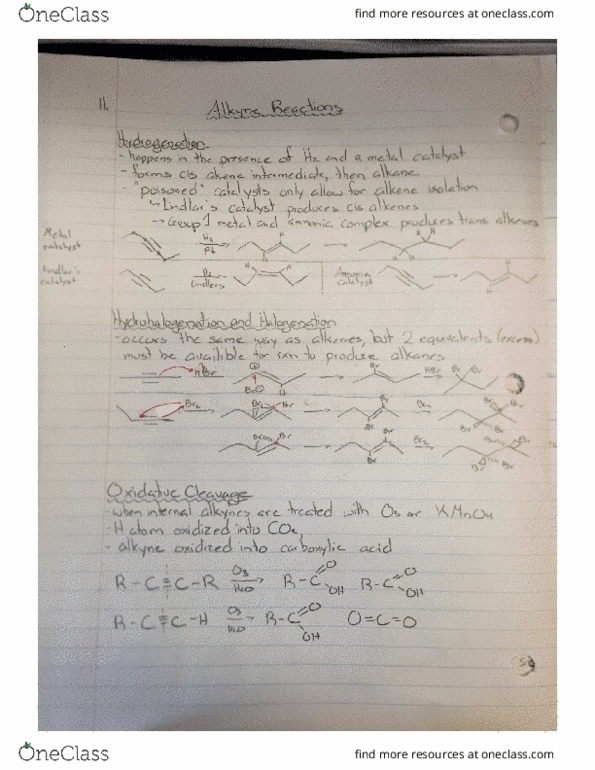 OneClass
find more resources at oneclass.com
11.
Alkyne Reactions
Hydrogenation
- happens in the presence of H2 and a metal catalyst
- forms cis alkene intermediate, then alkane
- "poisoned" catalysts only allow for alkene isolation
↳ Lindlar's catalyst produces cis alkenes
→ Group 1 metal and ammonia complex produces trans alkenes
Metal catalyst
H2
Pt
H
H
H
H
Lindlar's catalyst
H2
Lindlers
H
H
Ammonia catalyst
H
H
Hydrohalogenation and Halogenation
- occurs the same way as alkenes, but 2 equivalents (excess)
must be availible for rxn to produce alkanes
HBr
Br
HBr
Br
Br
Br2
Br
Br
Br
Br2
Br
Br
Br
Br
Br
Br2
Br
Br
Oxidative Cleavage
- when internal alkynes are treated with O3 or KMnO4
- H atom oxidized into CO2,
- alkyne oxidized into carboxylic acid
R-C≡C-R O3 H2O R-C O OH R-C O OH
R-C≡C-H O3 H2O R-C O OH O=C=O
OneClass
find more resources at oneclass.com